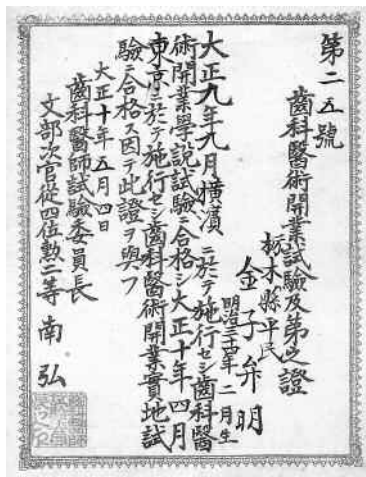 第二五號
齒科醫術開業試驗及第之證
栃木縣平民
金子弁明
明治三十四年二月生
大正九年九月橫濱ニ於テ施行セシ齒科醫
術開業學說試驗ニ合格シ大正十年四月
東京ニ於テ施行セシ齒科醫術開業實地試
驗ニ合格ス因テ此證ヲ與フ
大正十年五月四日
齒科醫師試驗委員長
文部次官從四位勳二等 南弘